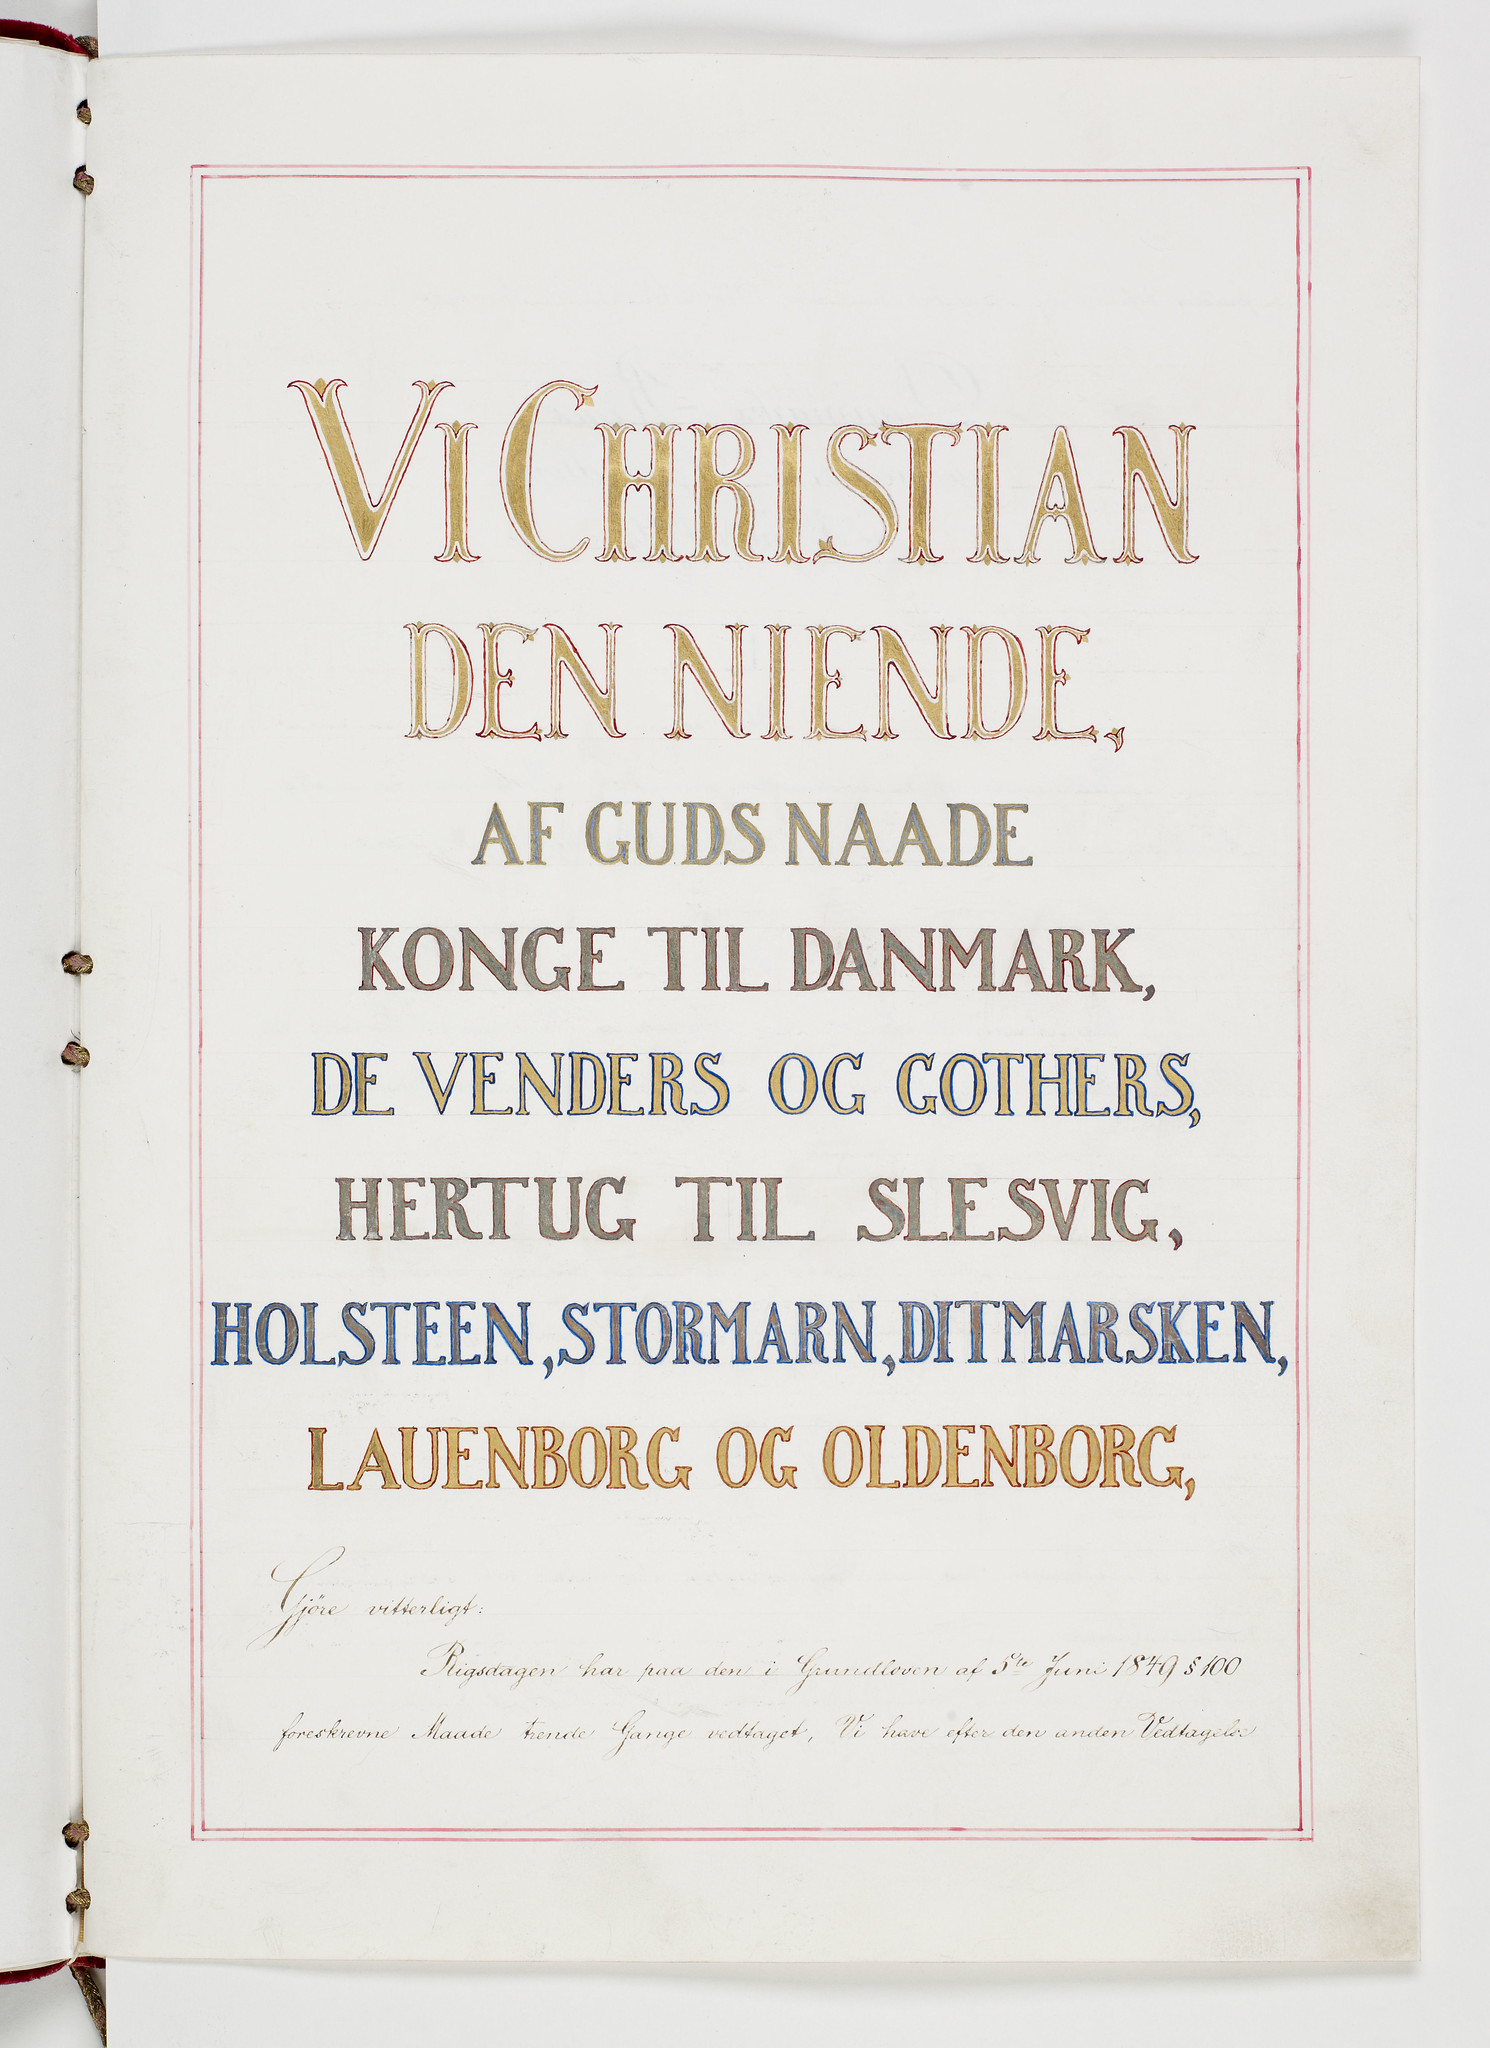 VI CHRISTIAN
DEN NIENDE,
AF GUDS NAADE
KONGE TIL DANMARK,
DE VENDERS OG GOTHERS,
HERTUG TIL SLESVIG,
HOLSTEEN, STORMARN, DITMARSKEN,
LAUENBORG OG OLDENBORG,
Gjöre vitterligt:
Rigsdagen har paa den i Grundloven af 5te Juni 1849 § 100
foreskrevne Maade trende Gange vedtaget, Vi have efter den anden Vedtagelse